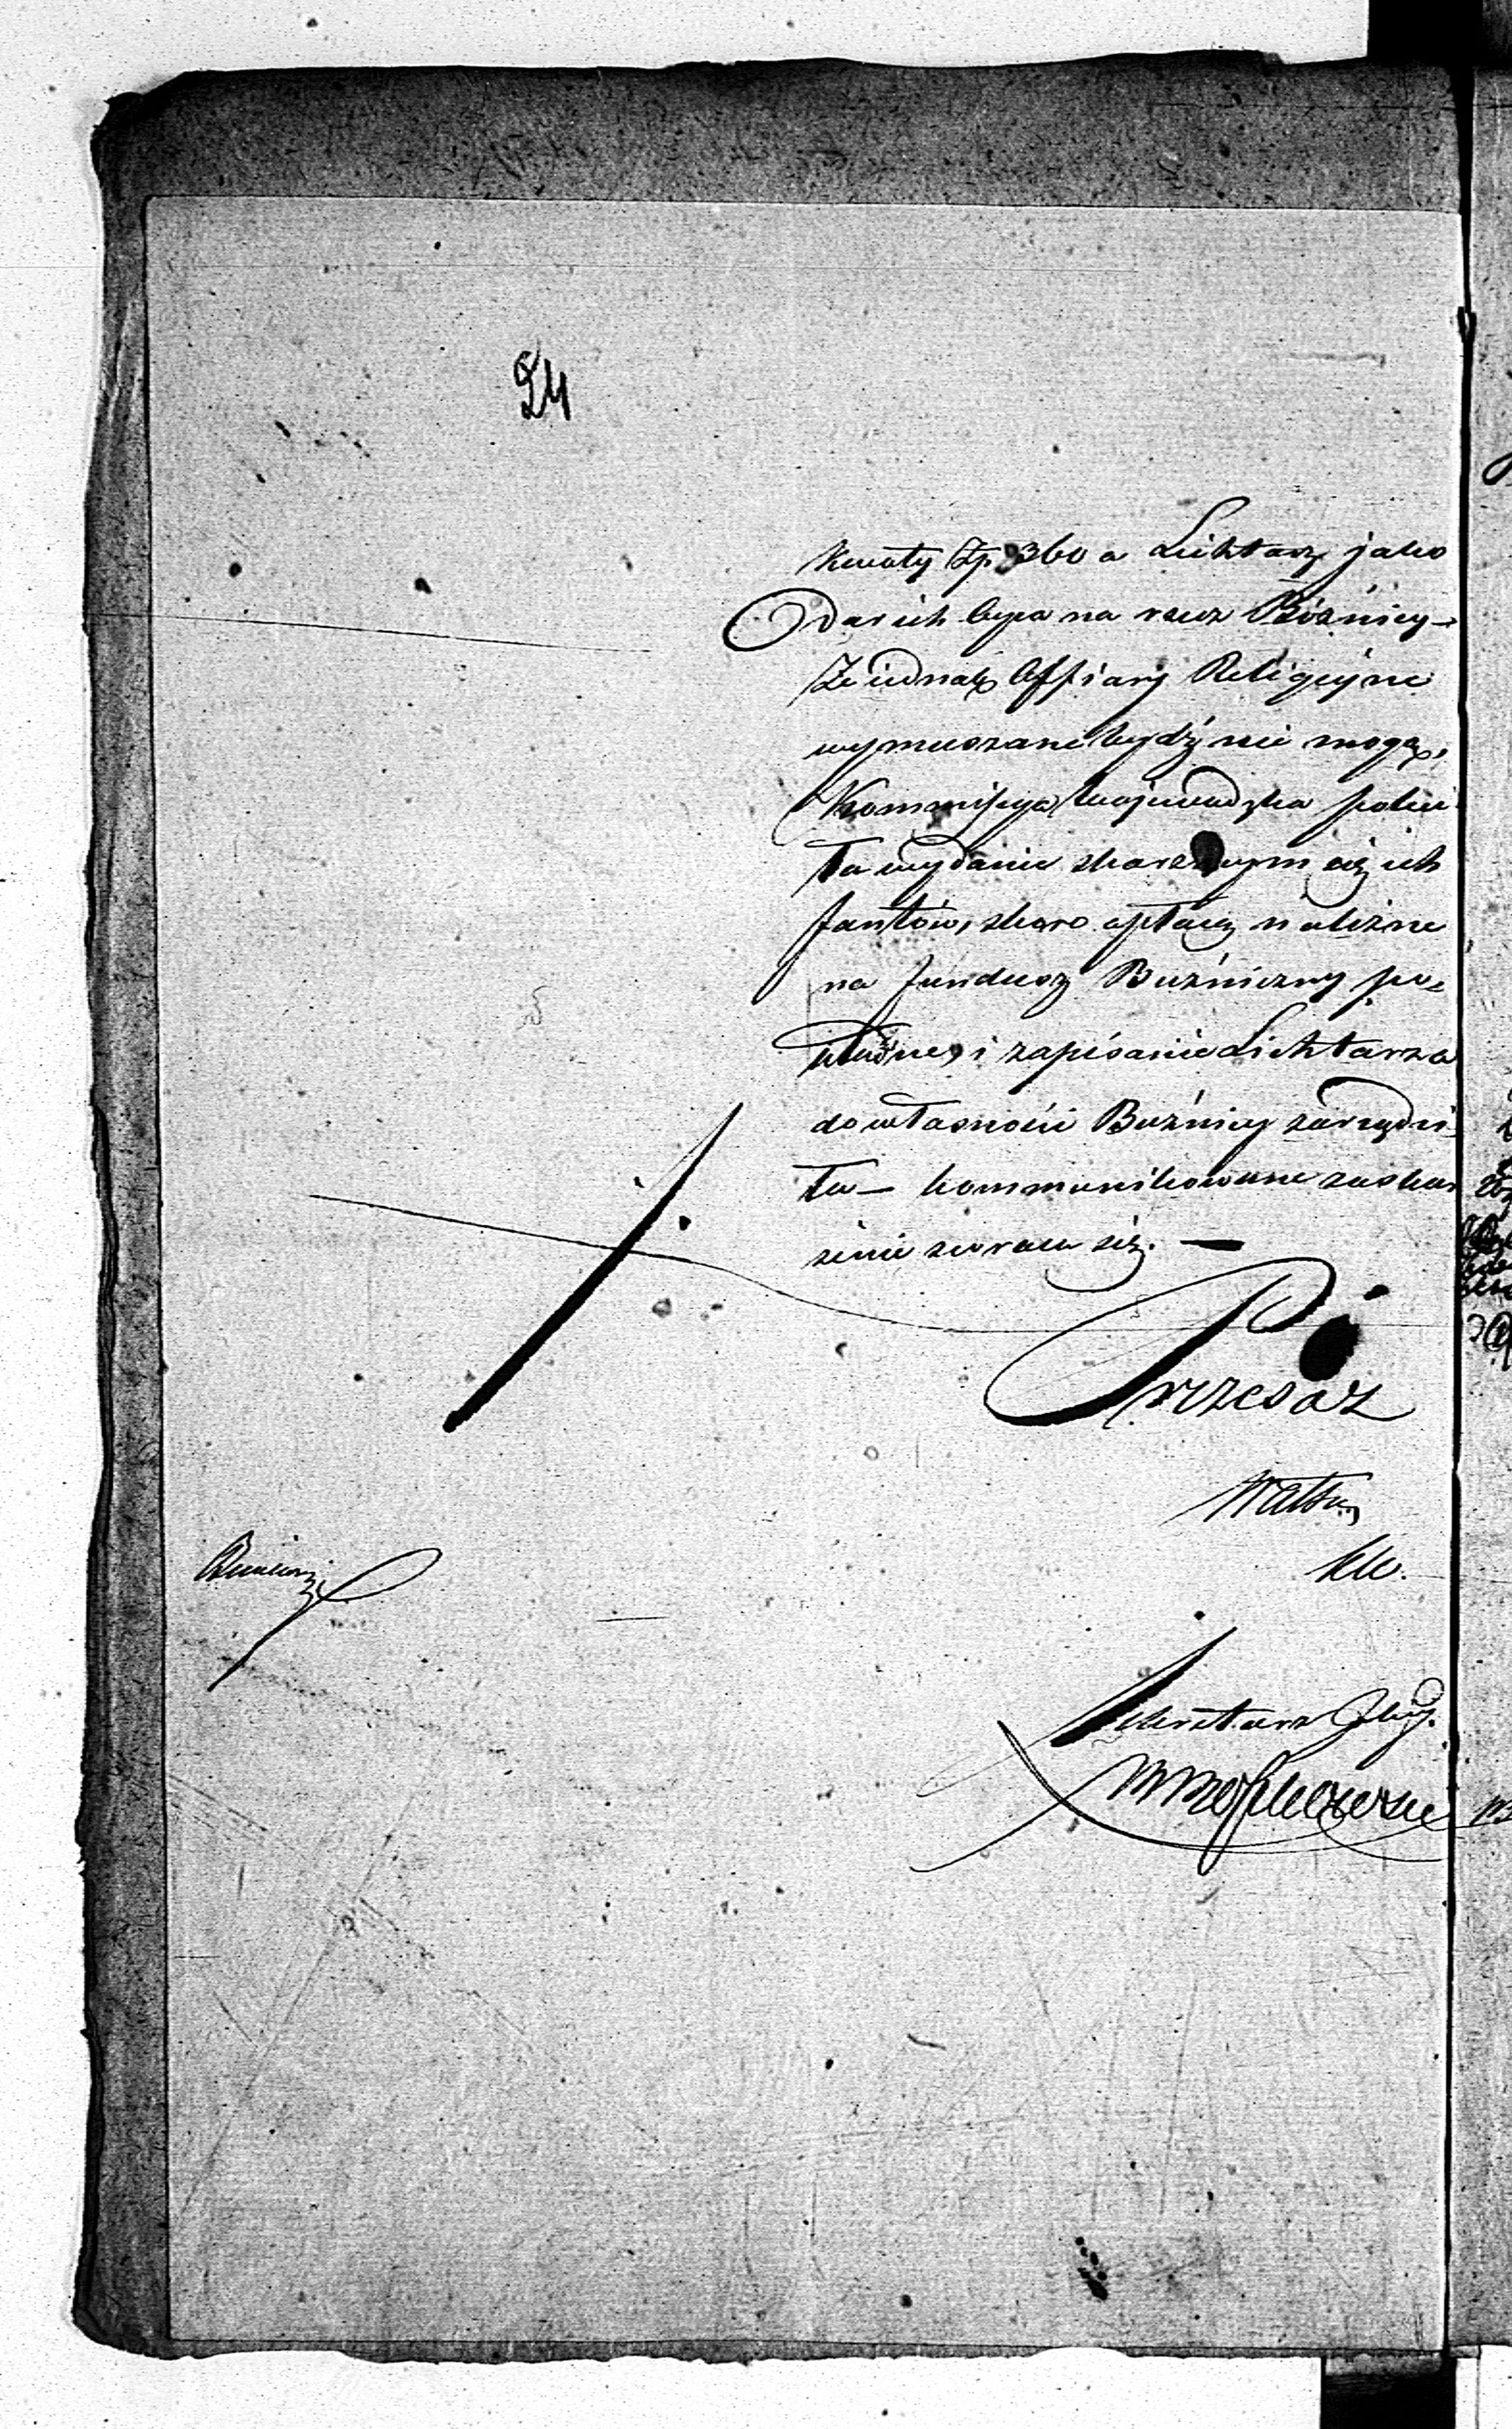 24
kwoty Zp. 360 a Lichtarz jako
Dar ich bypa na rzecz Bóźnicy –
Że iednak Offiary Religiyne
wymuszane bydź nie mogą,
Kommissya Woiewodzka poleci
ła wydanie skarzącym się ich
fantów, skoro opłacą należne
na fundusz Bużniczny po=
i zapisanie Lichtarza
do własności Bużnicy zarządzi
ła – kommunikowane zaskar
żenie zwraca się. –
Prezes
Sekretarz Jlny.